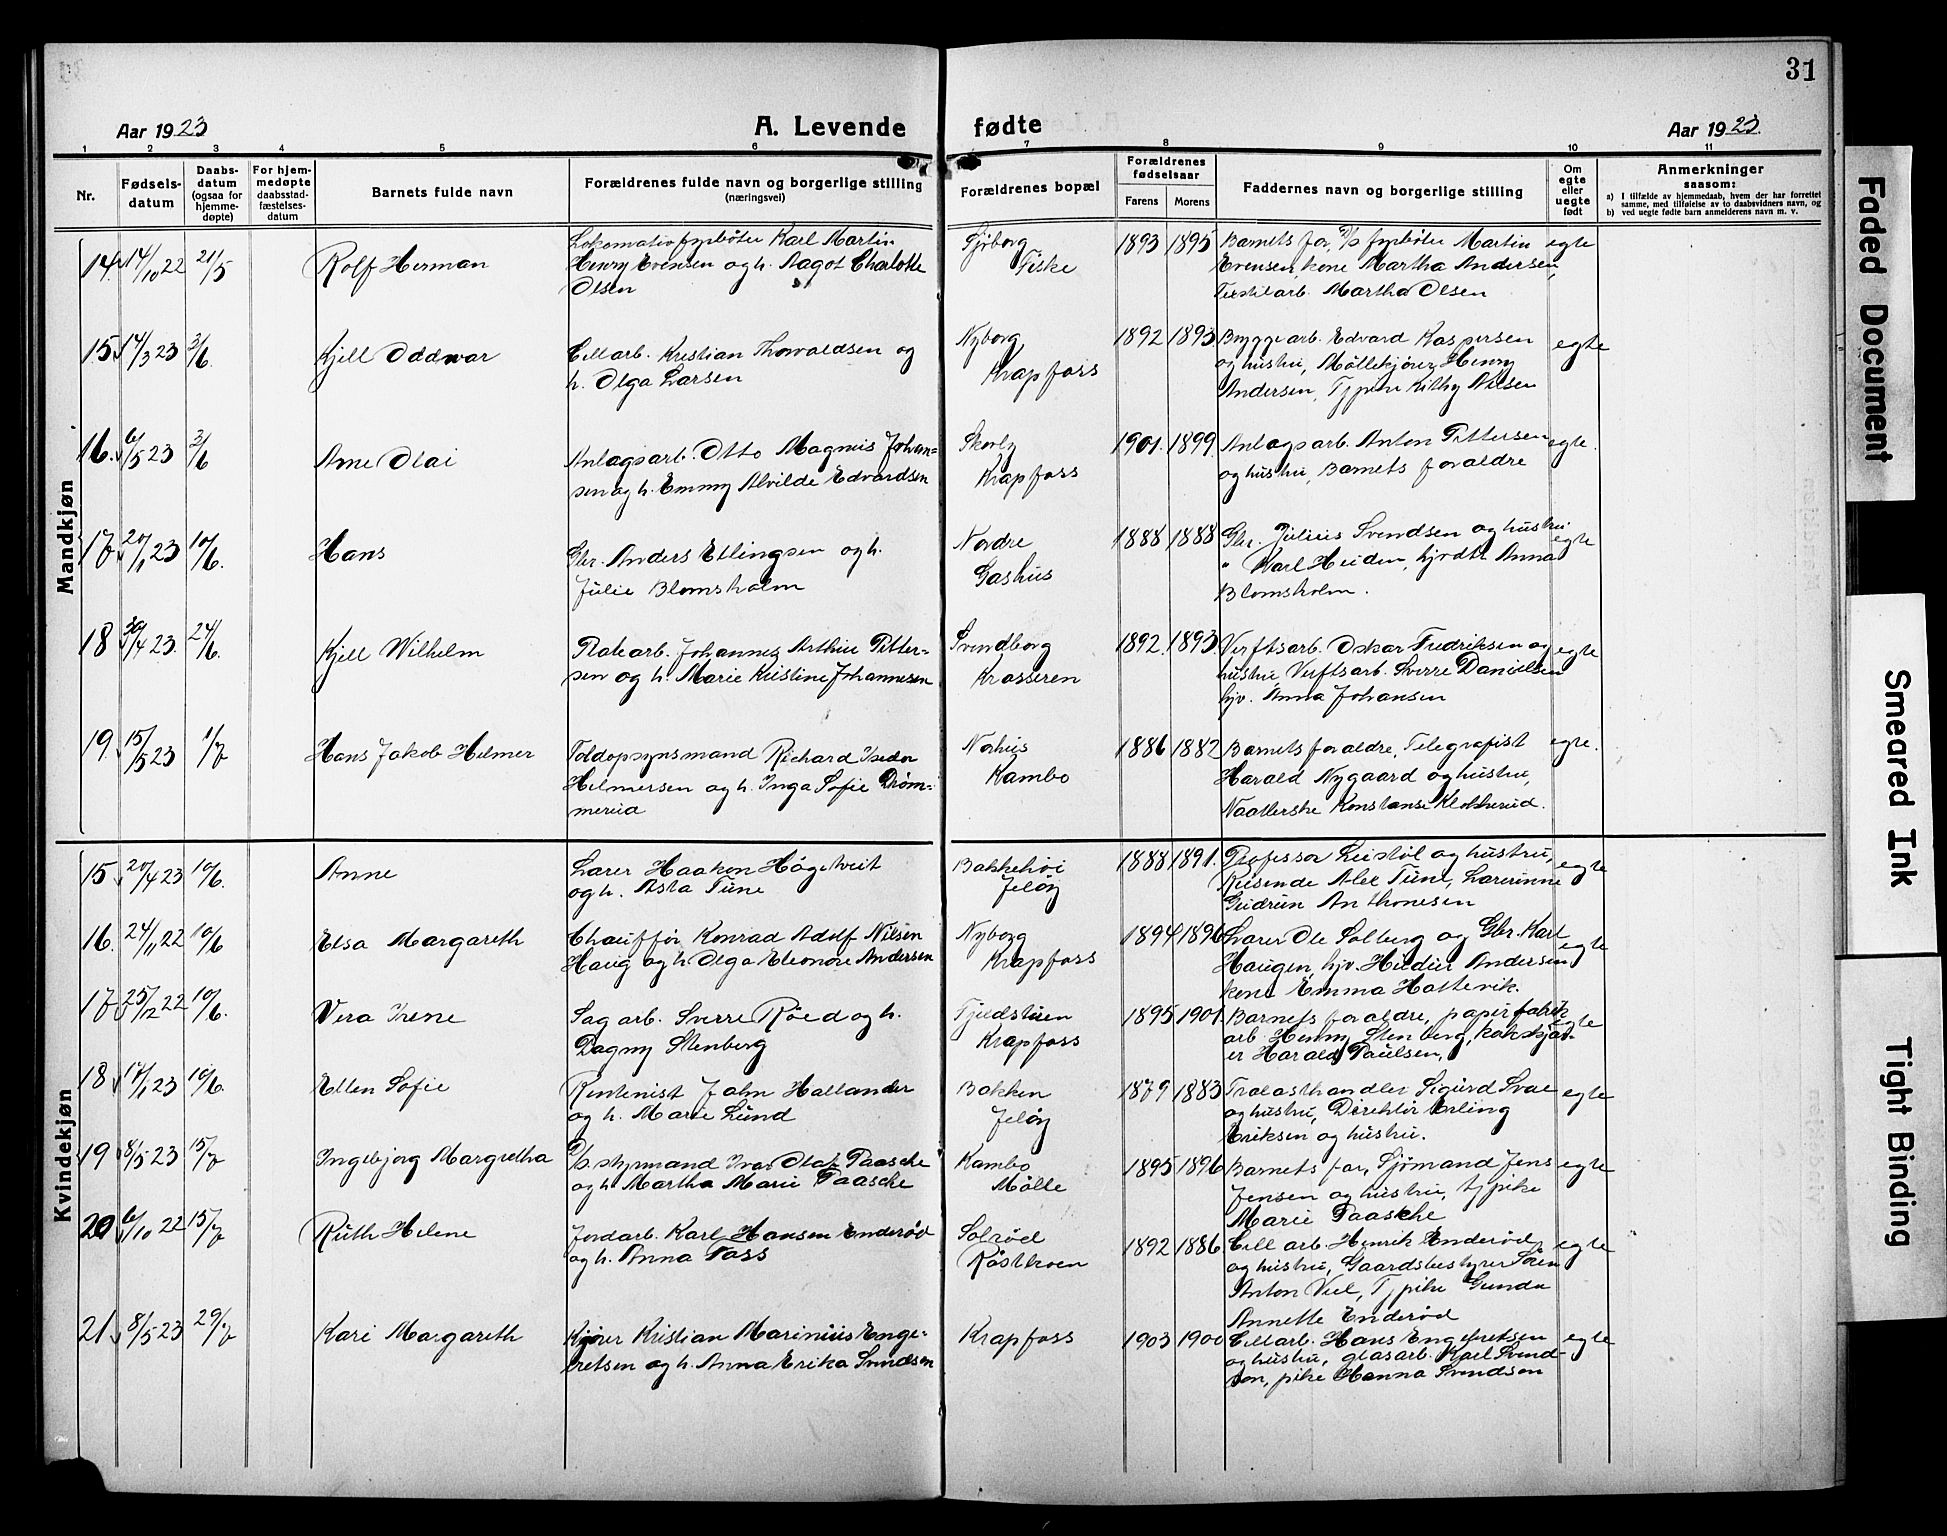 31
Aar 1923
A. Levende fødte
Aar 1923.
1 2 3 4 5 6 7 8 9 10 11
Nr.
Fødsels-
datum
Daabs-
datum
(ogsaa for
hjemme-
døpte)
For hjem-
medøpte
daabsstad-
fæstelses-
datum
Barnets fulde navn
Forældrenes fulde navn og borgerlige stilling
(næringsvei)
Forældrenes bopæl
Forældrenes
fødselsaar
Farens Morens
Faddernes navn og borgerlige stilling
Om
egte
eller
uegte
født
Anmerkninger
saasom:
a) I tilfælde av hjemmedaab, hvem der har forrettet
samme, med tilføielse av to daabsvidners navn, og
b) ved uegte fødte barn anmelderens navn m. v.
Mandkjøn
14. 14/10 22 21/5
Rolf Herman
Lokomotivfyrbøter Karl Martin
Henry Evensen og h. Aagot Charlotte
Olsen
Fjørborg
Fiske
1893 1895
Barnets far, D/s fyrbøter Martin
Evensen, kone Martha Andersen,
Textilarb. Martha Olsen
egte
15 14/3 23 3/6.
Kjell Oddvar
Cellarb. Kristian Thorvaldsen og
h. Olga Larsen
Nyborg
Krapfoss
1892 1893
Bryggearb. Edvard Kaspersen
og hustru, Møllekjører Henry
Andersen, Tj.pike
egte
16. 6/5 23 3/6
Arne Olai
Anlagsarb. Otto Magnus Johan-
sen og h. Emmy Alvilde Edvardsen
Skorby
Krapfoss
1901. 1899.
Anlagsarb. Anton Pettersen
og hustru, Barnets foraldre
egte.
17 20/1 23 10/6.
Hans
Gbr. Anders Ellingsen og h.
Julie Blomsholm
Nordre
Gashus
1888 1888
Gbr. Julius Svendsen og hustru
" Karl Heiden, Anna
Blomsholm.
egte
18 30/4 23. 24/6.
Kjell Wilhelm
Platearb. Johannes Arthur Petter-
sen og h. Marie Kristine Johannesen
Svendborg
Krosseren
1892. 1893.
Verftsarb. Oskar Fredriksen og
hustru, Verftsarb. Sverre Danielsen
hjv. Anna Johansen
egte
19. 15/5 23 1/7
Hans Jakob Helmer
Toldopsynsmand Richard Isidor
Helmersen og h. Inga Sofie Drøm-
merud
Norhus
Kambo
1886 1882
Barnets foraldre, Telegrafist
Harald Nygaard og hustru,
Naatlerske Konstanse Klokkerud.
egte.
Kvindekjøn
15 20/4 23 10/6.
Anne
Larer Haakon Høgetveit
og h. Asta Tune
Bakkehøi
Jeløy
1888 1891.
Professor Leistøl og hustru,
Reisende Alex Tune, Larerinne
Gudrun Anthonesen
egte
16. 24/11 22 10/6
Elsa Margareth
Chauffør Konrad Adolf Nilsen
Haug og h. Olga Eleonore Andersen
Nyborg
Krapfoss
1894 1896
Larer Ole Solberg og Gbr. Karl
Haugen, hjv. Andersen
kone Emma Hattevik.
egte
17 25/12 22 10/6.
Vera Irene
Sagarb. Sverre Røed og h.
Dagny Stenberg
Fjeldstuen
Krapfoss
1895 1901.
Barnets foraldre, papirfabrik
arb. Henry Stenberg, kokskjør-
er Harald Paulsen,
egte
18 14/1 23 10/6.
Ellen Sofie
Rentenist John Hallander
og h. Marie Lund
Bakken
Jeløy
1879 1883
Tralasthandler Sigurd Svae
og hustru, Direktør Erling
Eriksen og hustru.
egte
19 8/5 23 15/7
Ingebjorg Margretha
D/s. styrmand Ivar Olaf Paasche
og h. Martha Marie Paasche
Kambo
Mølle
1895 1896
Barnets far, Sjømand Jens
Jensen og hustru, tj.pike
Marie Paasche
egte
20 6/10 22 15/7
Ruth Helene
Jordarb. Karl Hansen Enderød
og h. Anna Foss
Solrød
Røstkoen
1892 1886
Cellarb. Henrik Enderød
og hustru, Gaardsbestyrer Søren
Anton Viel, Tj.pike Gunda
Annette Enderød
egte
21 8/5 23 29/7
Kari Margareth
Kjører Kristian Marinius Enge-
bretsen og h. Anna Erika Svendsen
Krapfoss
1903 1900
Cellarb. Hans Engebretsen
og hustru, glasarb. Karl Svend-
sen, pike Hanna Svendsen
egte
Faded Document
Smeared Ink
Tight Binding